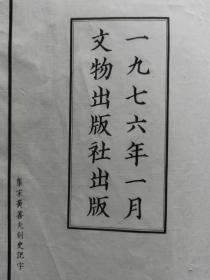 一九七六年一月
文物出版社出版
集宋黄善夫刻史記字